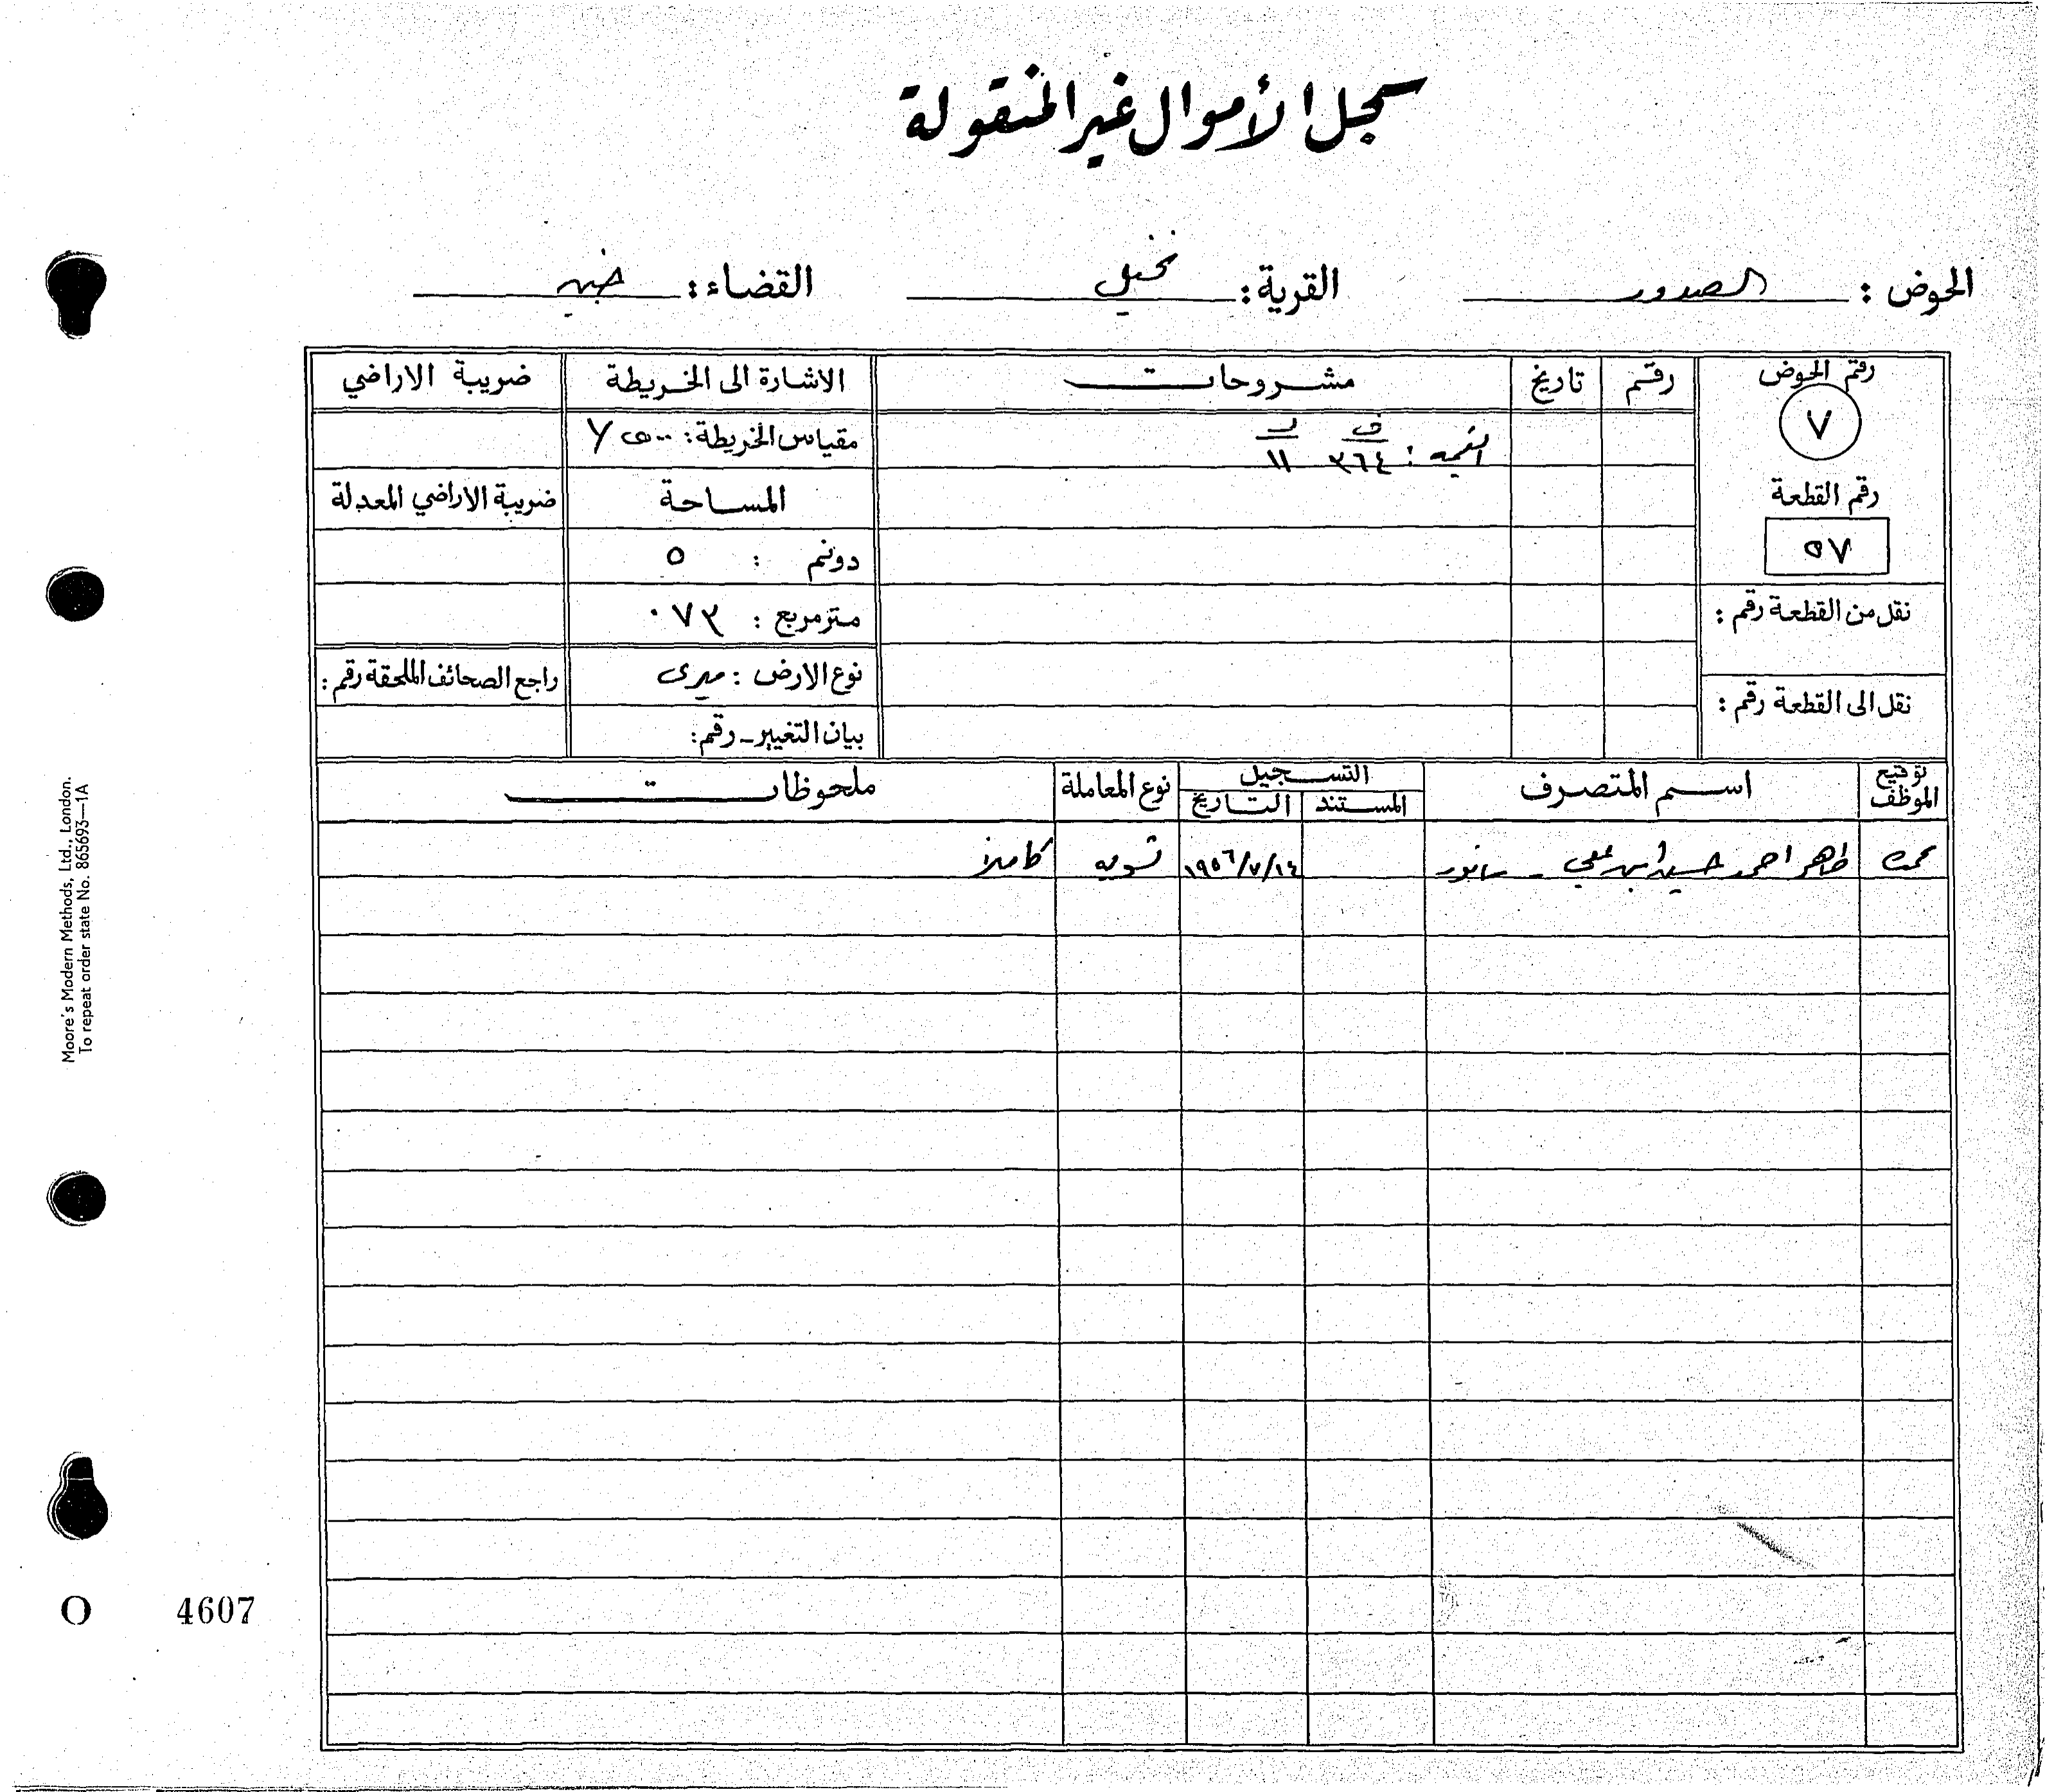 سجل الأموال غير المنقولة
الحوض : الصدور القرية : نخيل القضاء : جنين
رقم الحوض رقم تاريخ مشروحات الاشارة الى الخريطة ضريبة الاراضي
٧
القيمة : ٣٦٤ ١١ مقياس الخريطة :
رقم القطعة المساحة ضريبة الاراضي المعدلة
٥٧ دونم : ٥
نقل من القطعة رقم : متر مربع : ٠٧٣
نوع الارض : ميرى راجع الصحائف الملحقة رقم :
نقل الى القطعة رقم : بيان التغيير - رقم :
توقيع الموظف اسم المتصرف التسجيل نوع المعاملة ملحوظات
المستند التاريخ
طاهر احمد حسين ابن علي - سانور ١٩٥٦/٧/١٤ تسويه كاملا
Moore's Modern Methods, Ltd., London.
To repeat order state No. 865693—1A
O 4607